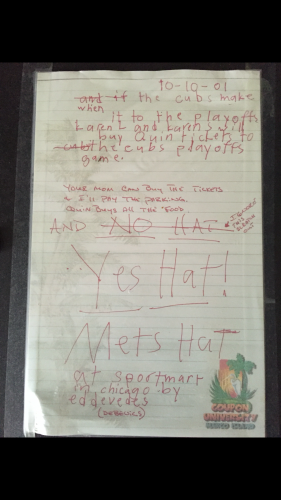 10-10-01
and if the cubs make
when
it to the playoffs
Karen L and Karen S will
buy Quin tickets to
the cubs playoffs
game.
Your mom can buy the tickets
& I'll pay the parking.
Quin buys all the food
AND NO HAT
Yes Hat!
Mets Hat
at sportmart
in chicago by
eddevedes
COUPON
UNIVERSITY